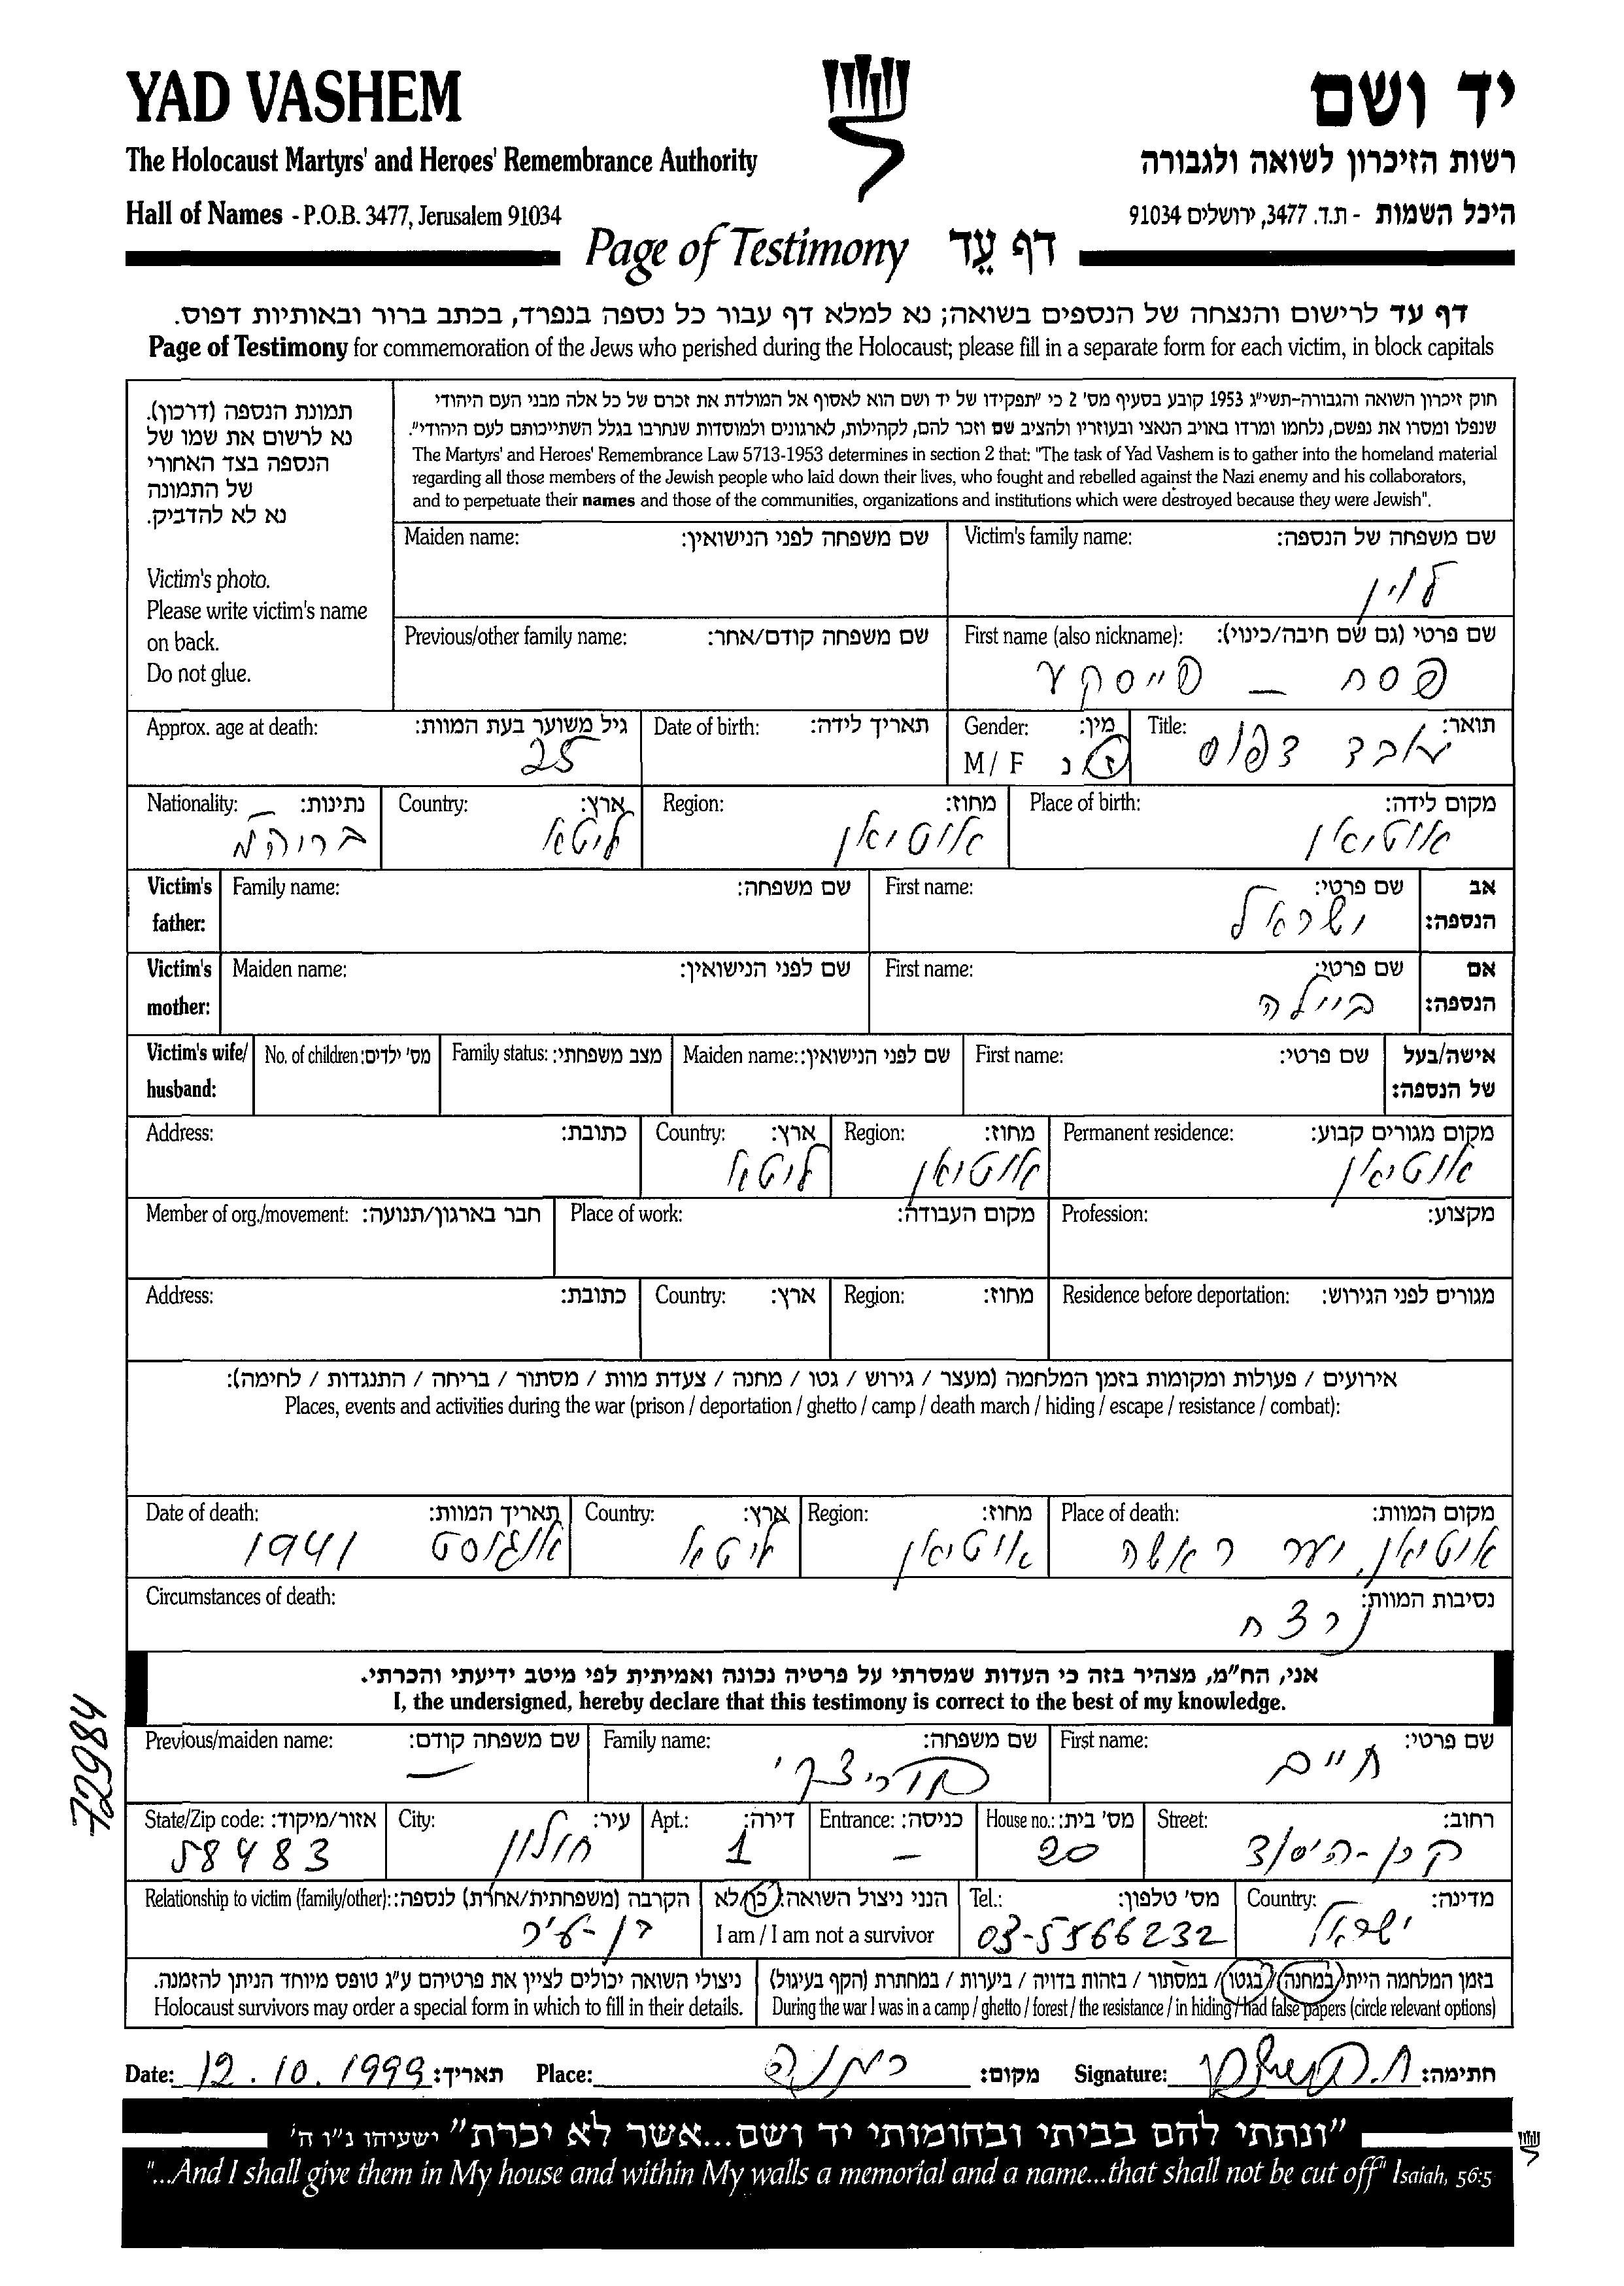 YAD VASHEM
יד ושם
The Holocaust Martyrs' and Heroes' Remembrance Authority
רשות הזיכרון לשואה ולגבורה
Hall of Names - P.O.B. 3477, Jerusalem 91034
היכל השמות - ת.ד. 3477, ירושלים 91034
Page of Testimony דף עֵד
דף עד לרישום והנצחה של הנספים בשואה; נא למלא דף עבור כל נספה בנפרד, בכתב ברור ובאותיות דפוס.
Page of Testimony for commemoration of the Jews who perished during the Holocaust; please fill in a separate form for each victim, in block capitals
תמונת הנספה (דרכון).
נא לרשום את שמו של
הנספה בצד האחורי
של התמונה
נא לא להדביק.
Victim's photo.
Please write victim's name
on back.
Do not glue.
חוק זיכרון השואה והגבורה-תשי"ג 1953 קובע בסעיף מס' 2 כי "תפקידו של יד ושם הוא לאסוף אל המולדת את זכרם של כל אלה מבני העם היהודי
שנפלו ומסרו את נפשם, נלחמו ומרדו באויב הנאצי ובעוזריו ולהציב שם וזכר להם, לקהילות, לארגונים ולמוסדות שנחרבו בגלל השתייכותם לעם היהודי".
The Martyrs' and Heroes' Remembrance Law 5713-1953 determines in section 2 that: "The task of Yad Vashem is to gather into the homeland material
regarding all those members of the Jewish people who laid down their lives, who fought and rebelled against the Nazi enemy and his collaborators,
and to perpetuate their names and those of the communities, organizations and institutions which were destroyed because they were Jewish".
Victim's family name: שם משפחה של הנספה:
לוין
Maiden name: שם משפחה לפני הנישואין:
First name (also nickname): שם פרטי (גם שם חיבה/כינוי):
פסח – פייסקע
Previous/other family name: שם משפחה קודם/אחר:
Title: תואר:
עובד דפוס
Gender: מין:
M / F ז נ
Date of birth: תאריך לידה:
Approx. age at death: גיל משוער בעת המוות:
25
Place of birth: מקום לידה:
אוטיאן
Region: מחוז:
אוטיאן
Country: ארץ:
ליטא
Nationality: נתינות:
Victim's father: אב הנספה:
First name: שם פרטי:
ישראל
Family name: שם משפחה:
Victim's mother: אם הנספה:
First name: שם פרטי:
ביילה
Maiden name: שם לפני הנישואין:
Victim's wife/ husband: אישה/בעל של הנספה:
First name: שם פרטי:
Maiden name: שם לפני הנישואין:
Family status: מצב משפחתי:
No. of children: מס' ילדים:
Permanent residence: מקום מגורים קבוע:
אוטיאן
Region: מחוז:
אוטיאן
Country: ארץ:
ליטא
Address: כתובת:
Profession: מקצוע:
Place of work: מקום העבודה:
Member of org./movement: חבר בארגון/תנועה:
Residence before deportation: מגורים לפני הגירוש:
Region: מחוז:
Country: ארץ:
Address: כתובת:
אירועים / פעולות ומקומות בזמן המלחמה (מעצר / גירוש / גטו / מחנה / צעדת מוות / מסתור / בריחה / התנגדות / לחימה):
Places, events and activities during the war (prison / deportation / ghetto / camp / death march / hiding / escape / resistance / combat):
Place of death: מקום המוות:
אוטיאן, יער ראשה
Region: מחוז:
אוטיאן
Country: ארץ:
ליטא
Date of death: תאריך המוות:
אוגוסט 1941
Circumstances of death: נסיבות המוות:
נרצח
אני, הח"מ, מצהיר בזה כי העדות שמסרתי על פרטיה נכונה ואמיתית לפי מיטב ידיעתי והכרתי.
I, the undersigned, hereby declare that this testimony is correct to the best of my knowledge.
72984
First name: שם פרטי:
חיים
Family name: שם משפחה:
Previous/maiden name: שם משפחה קודם:
–
Street: רחוב:
House no.: מס' בית:
20
Entrance: כניסה:
–
Apt.: דירה:
1
City: עיר:
חולון
State/Zip code: אזור/מיקוד:
58483
Country: מדינה:
ישראל
Tel.: מס' טלפון:
03-5566232
הנני ניצול השואה: כן/לא
I am / I am not a survivor
Relationship to victim (family/other): הקרבה (משפחתית/אחרת) לנספה:
בן-עיר
בזמן המלחמה הייתי במחנה / בגטו / במסתור / בזהות בדויה / ביערות / במחתרת (הקף בעיגול)
During the war I was in a camp / ghetto / forest / the resistance / in hiding / had false papers (circle relevant options)
ניצולי השואה יכולים לציין את פרטיהם ע"ג טופס מיוחד הניתן להזמנה.
Holocaust survivors may order a special form in which to fill in their details.
Date: 12.10.1999 תאריך: Place: מקום: Signature: חתימה:
"ונתתי להם בביתי ובחומותי יד ושם...אשר לא יכרת" ישעיהו נ"ו ה'
"...And I shall give them in My house and within My walls a memorial and a name...that shall not be cut off" Isaiah, 56:5